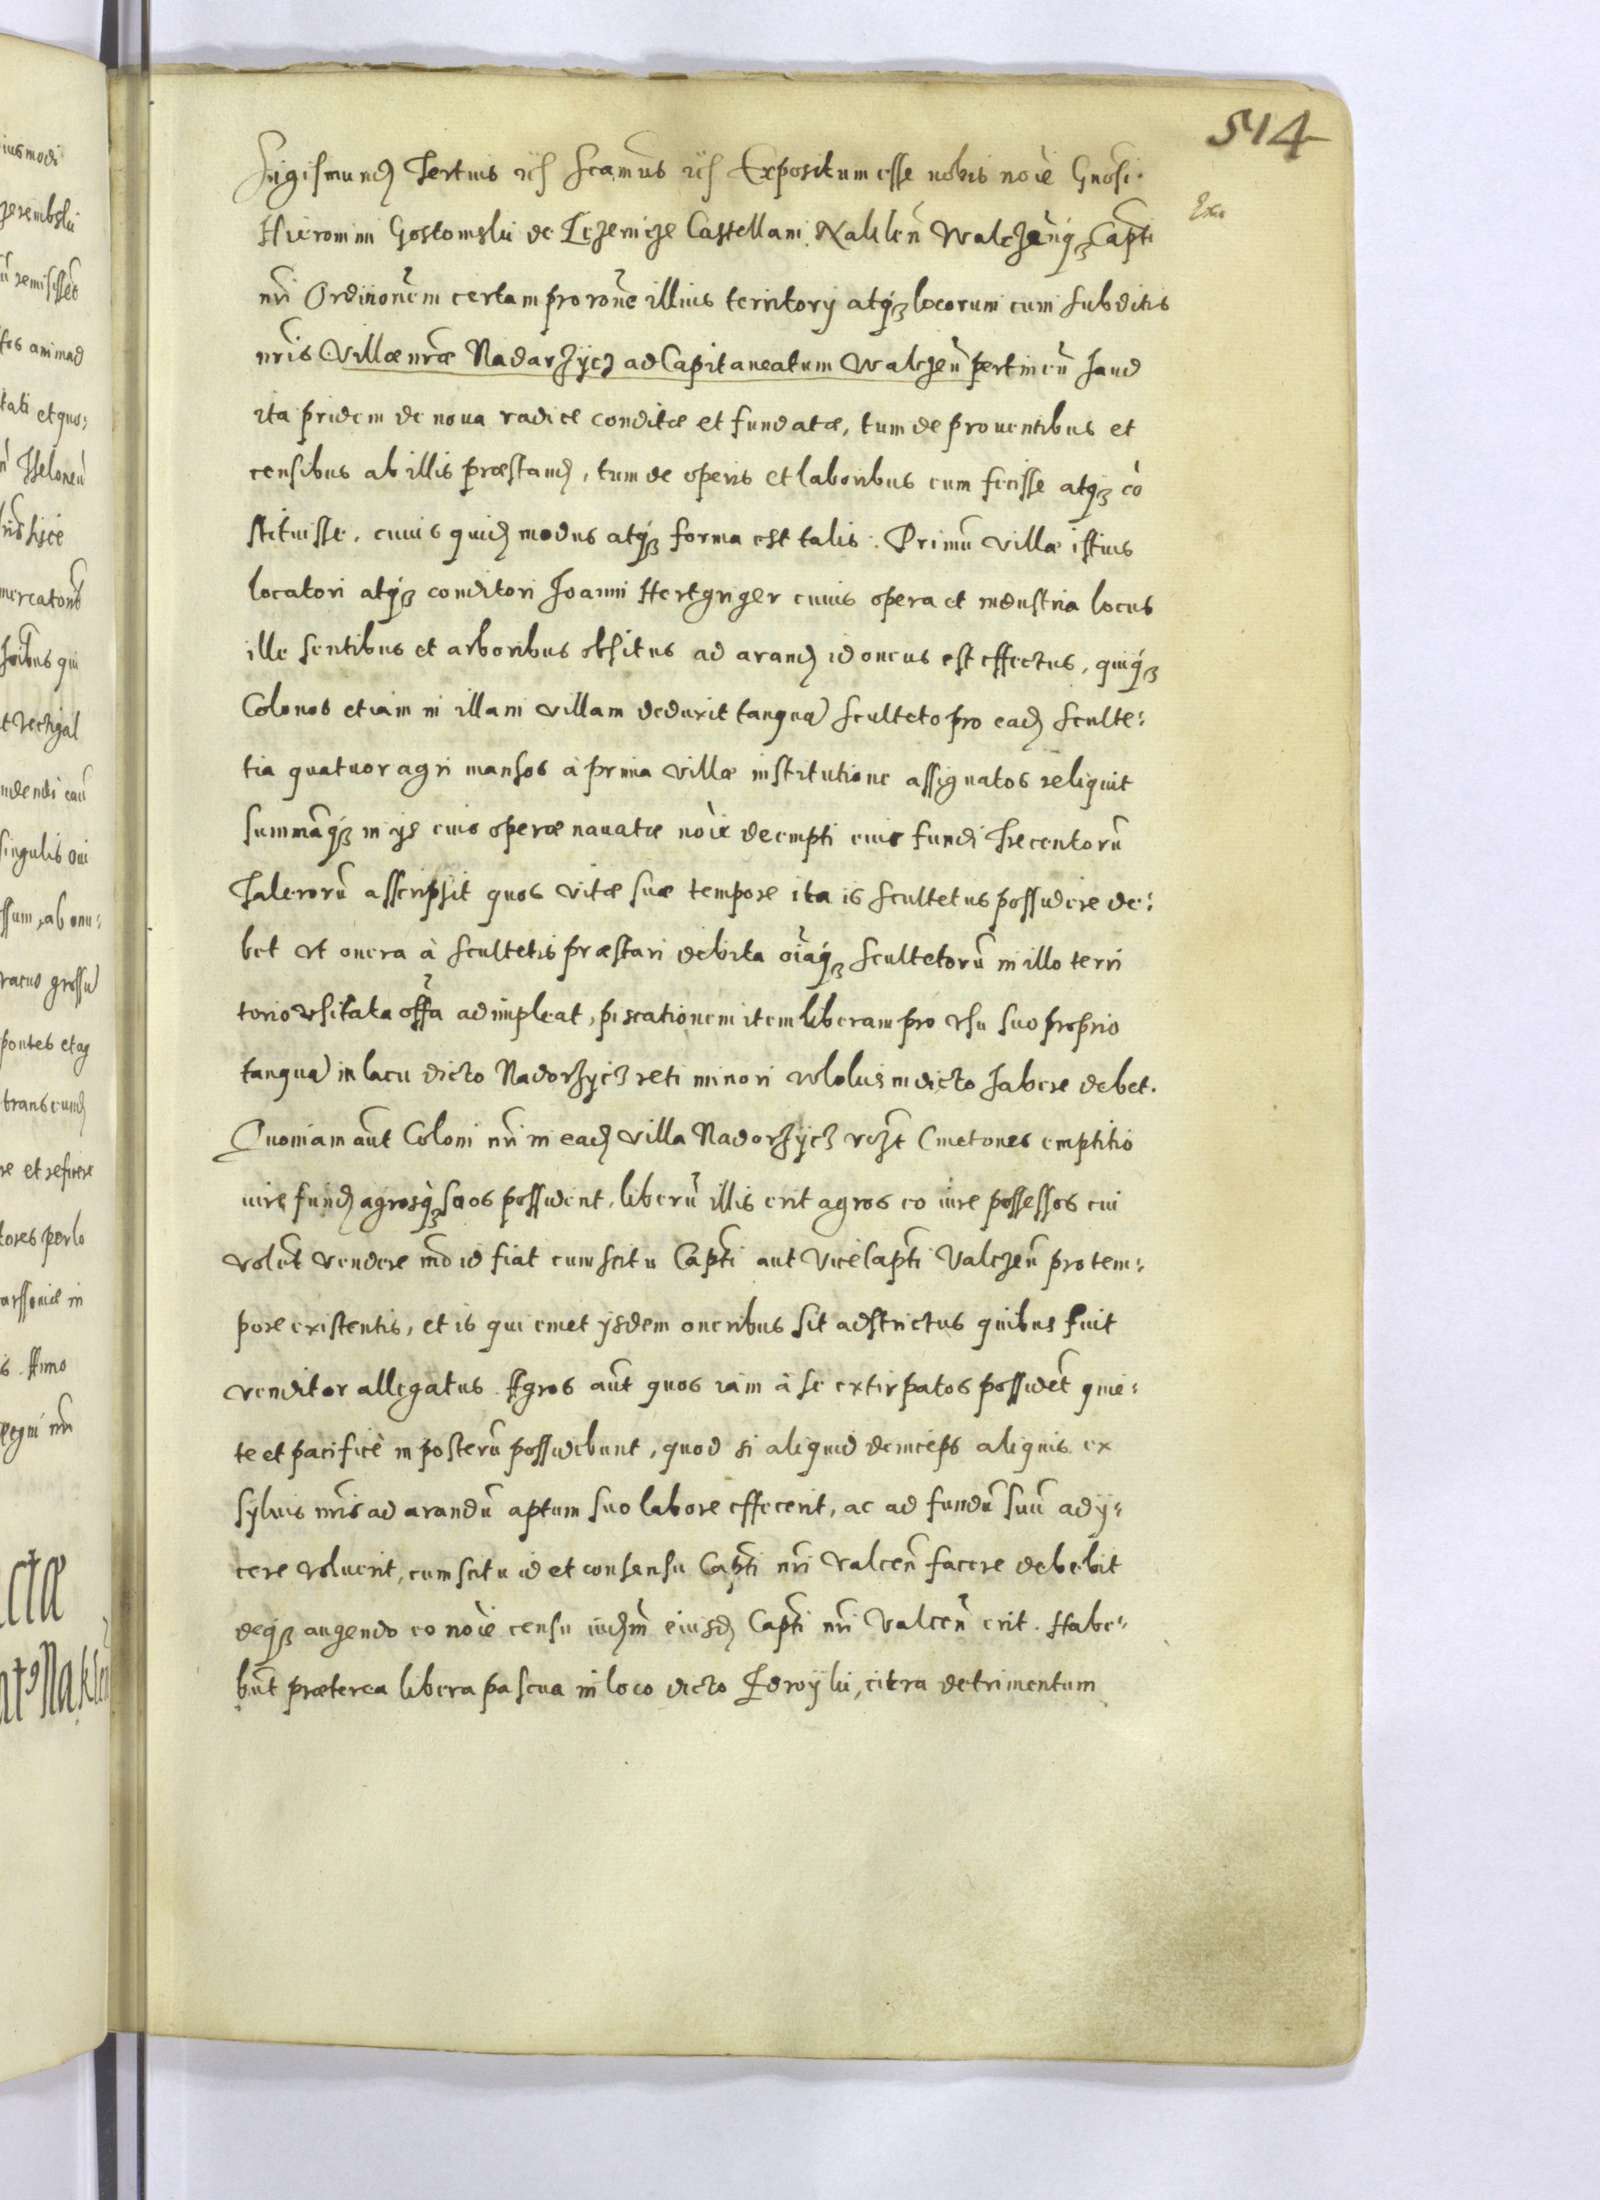 514
Sigismundus Tertius etc Scamus etc Expositum esse nobis noie Gnosi.
Exa
Hieronimi Gostomski de Lezenicze Castellani Naklen Walczenq Capti
nri Ordinonem certam pro rone illius territorij atq locorum cum subditis
nris Villæ nræ Nadarzycz ad Capitaneatum Walczen pertinen haud
ita pridem de noua radice conditæ et fundatæ, tum de prouentibus et
censibus ab illis præstand, tum de operis et laboribus eum fecisse atq co
stituisse, cuius quid modus atq forma est talis. Primu villæ istius
locatori atq conditori Joanni Hertgriger cuius opera et industria locus
ille sentibus et arboribus obsitus ad arand idoneus est effectus, quiq
Colonos etiam in illam villam deduxit tanqua Sculteto pro ead Sculte:
tia quatuor agri mansos à prima villæ institutione assignatos reliquit
summaq in ijs eius operæ nauatæ noie deempti eius fundi Trecentoru
Taleroru asscripsit quos vitæ suæ tempore ita is scultetus possidere de:
bet vt onera à scultetis præstari debita oiaq Scultetoru in illo terri
torio vsitata offa adimpleat, piscationem item liberam pro vsu suo proprio
tanqua in lacu dicto Nadorzycz reti minori wlolus in dicto habere debet.
Quoniam aut Coloni nri in ead villa Nadorzycz Cmetones emptitio
iure fund agrosq suos possident, liberu illis erit agros eo iure possessos cui
volet vendere mo id fiat cum scitu Capti aut Vicecapti Valczen pro tem:
pore existentis, et is qui emet ijsdem oneribus sit adstrictus quibus fuit
venditor allegatus. Agros aut quos iam à se extirpatos possidet quie:
te et pacificè in posteru possidebunt, quod si aliquid deinceps aliquis ex
syluis nris ad arandu aptum suo labore effecerit, ac ad fundu suu adij:
cere voluerit, cum scitu id et consensu Capti nri Valcen facere debebit
deq augendo eo noie censu iudm eiusd Capti nri Valcen erit. Habe:
bunt præterea libera pascua in loco dicto Ldroyki, citra detrimentum